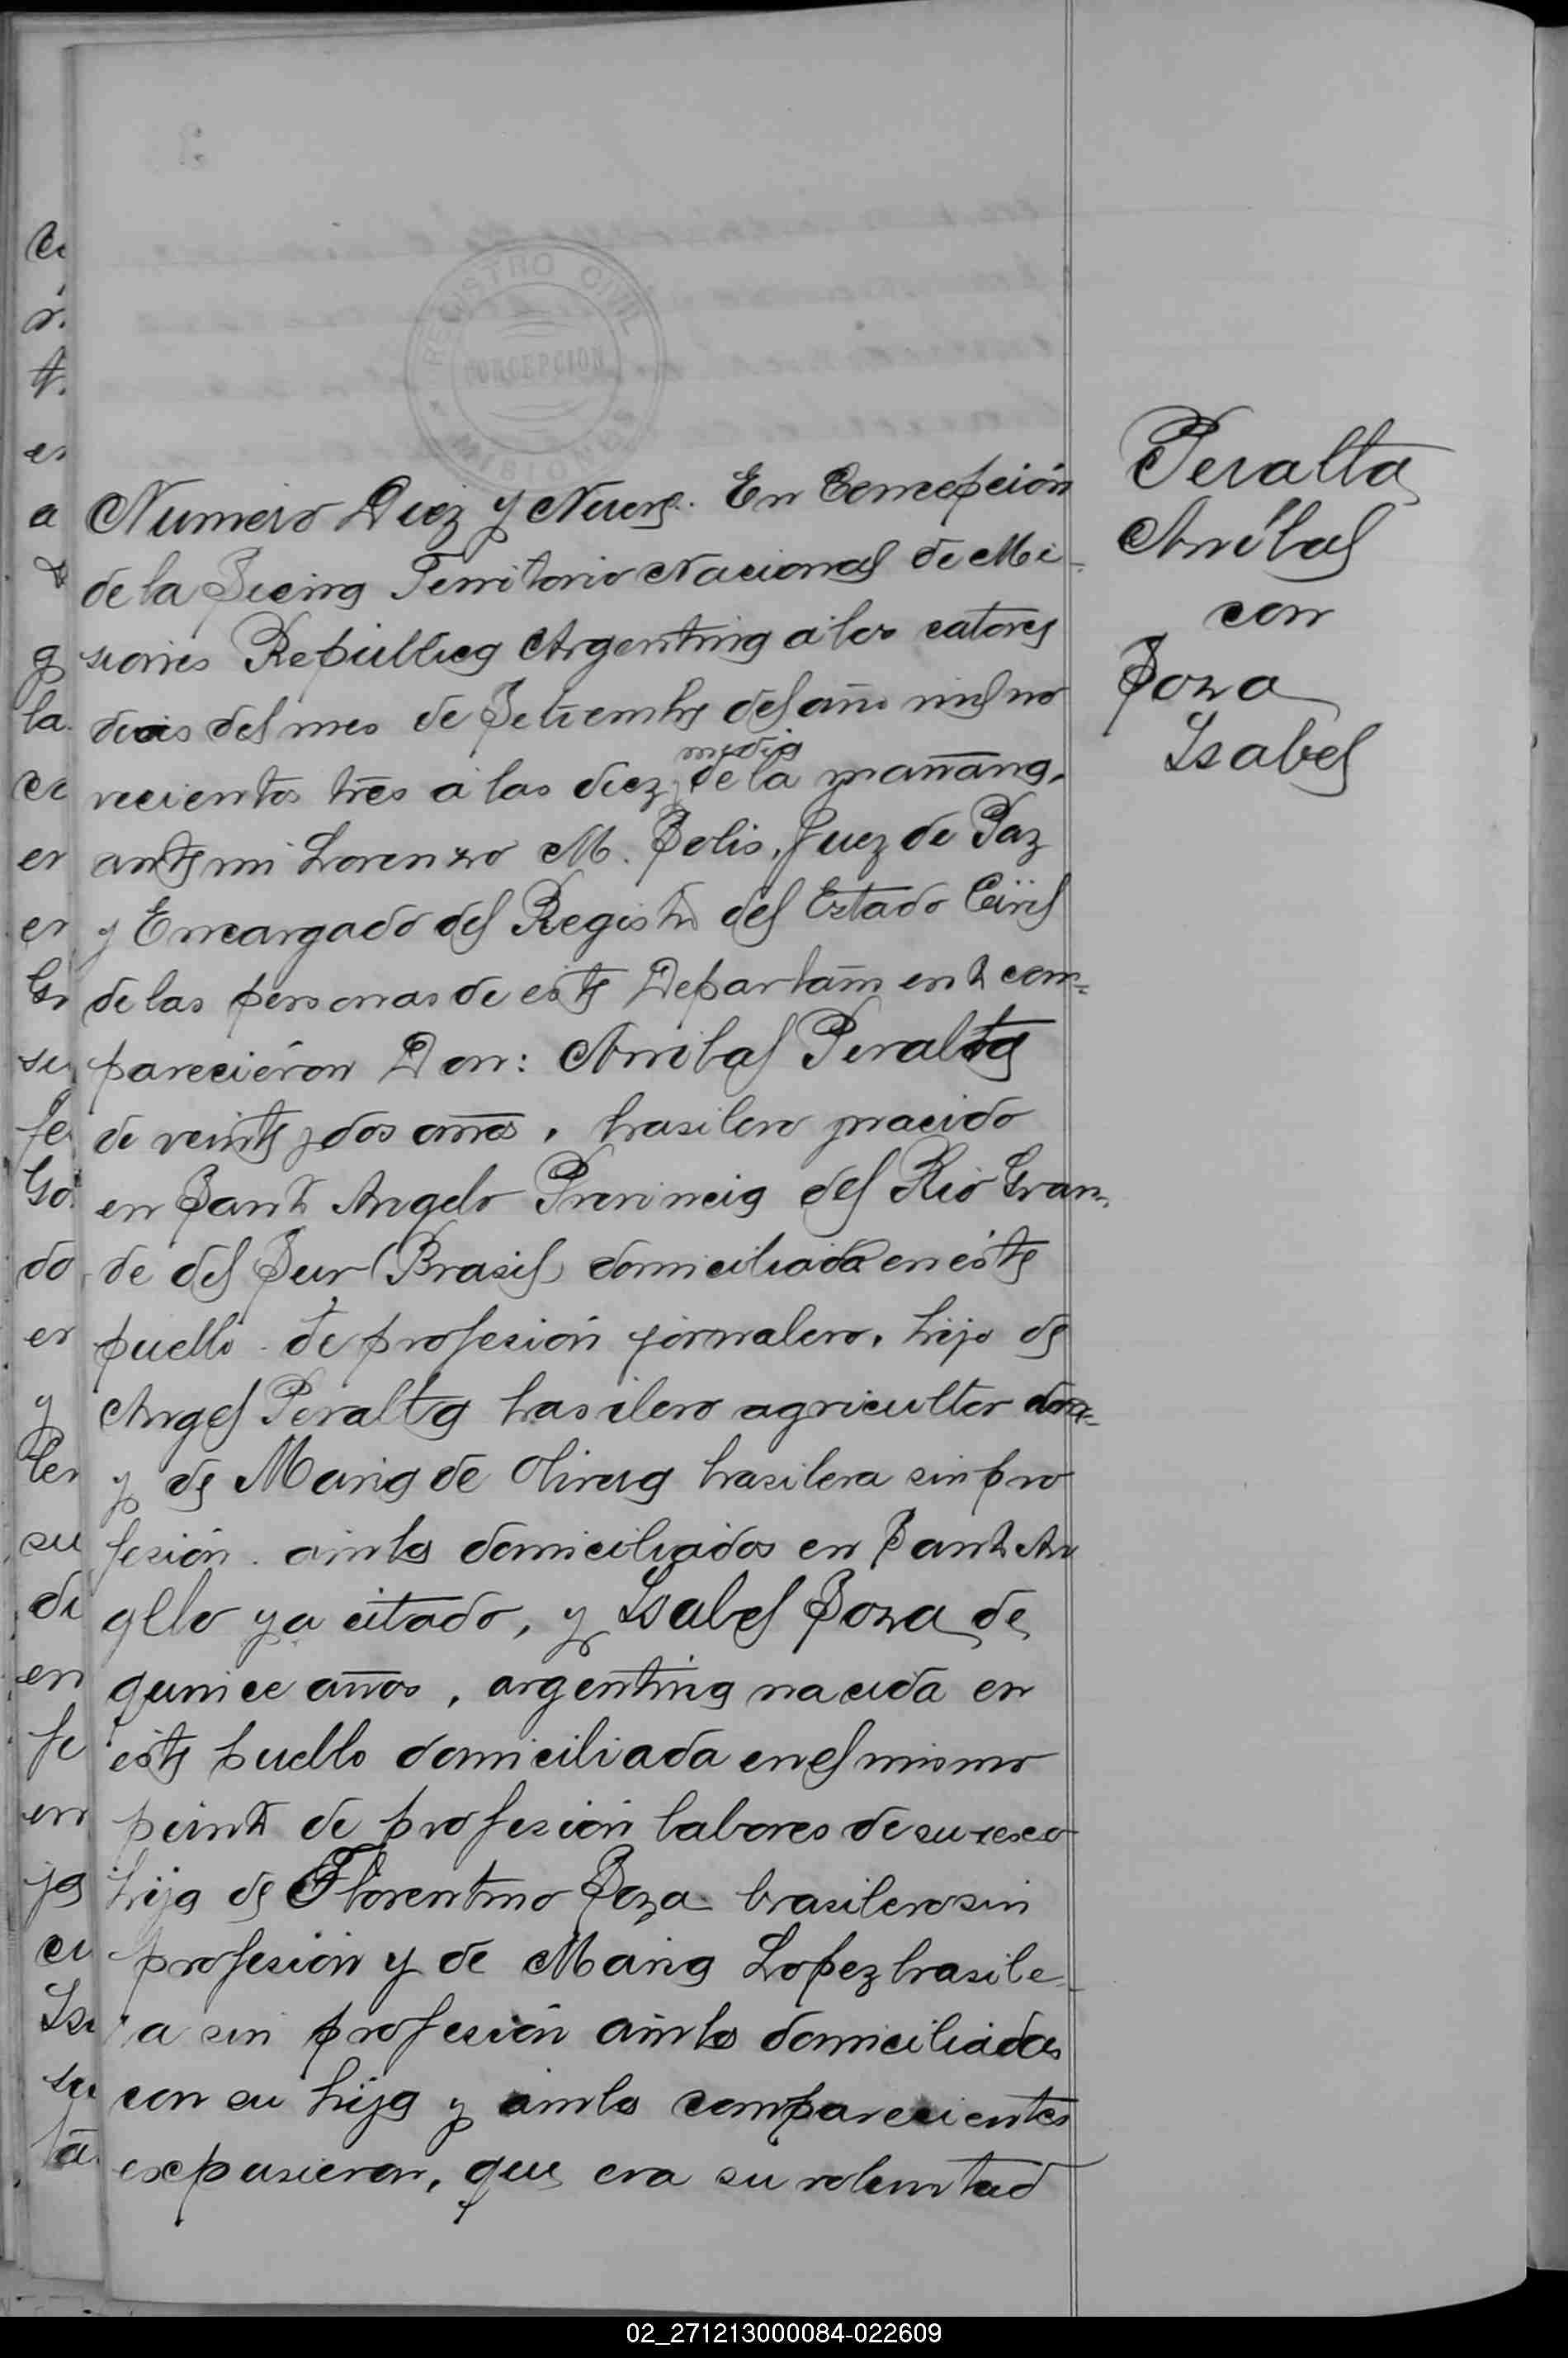 REGISTRO CIVIL
CONCEPCION
MISIONES
Peralta
Anibal
con
Soza
Isabel
Numero Diez y Nueve. En Concepción
de la Sierra Territorio Nacional de Mi-
siones República Argentina á los catorce
dias del mes de Setiembre del año mil no
vecientos tres á las diez y media de la mañana,
ante mi Lorenzo M. Solis, Juez de Paz
y Encargado del Registro del Estado Civil
de las personas de este Departamento com=
pareciéron Don: Anibal Peralta
de veinte y dos años, brasilero nacido
en Santo Angelo Provincia del Rio Gran=
de del Sur (Brasil) domiciliado en éste
pueblo de profesión jornalero, hijo de
Angel Peralta brasilero agricultor
y de Maria de Olivera brasilera sin pro
fesión. ambos domiciliados en Santo An
gelo ya citado, y Isabel Soza de
quince años, argentina nacida en
éste pueblo domiciliada en el mismo
punto de profesión labores de su sexo
hija de Florentino Soza brasilero sin
profesión y de Maria Lopez brasile-
ra sin profesión ambos domiciliados
con su hija y ambos comparecientes
expusieron, que era su voluntad
02_271213000084-022609